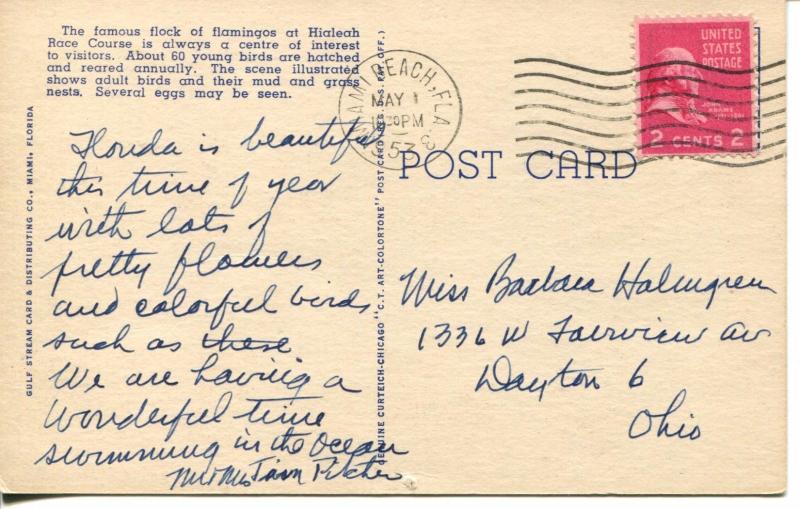 The famous flock of flamingos at Hialeah
Race Course is always a centre of interest
to visitors. About 60 young birds are hatched
and reared annually. The scene illustrated
shows adult birds and their mud and grass
nests. Several eggs may be seen.
Florida is beautiful
this time of year
with lots of
pretty flowers
and colorful birds
such as these
We are having a
wonderful time
swimming in the Ocean
Mr & Mrs Pitcher
GULF STREAM CARD & DISTRIBUTING CO., MIAMI, FLORIDA
GENUINE CURTEICH-CHICAGO "C.T. ART-COLORTONE" POST CARD (REG. U.S. PAT. OFF.)
MIAMI BEACH, FLA.
MAY 1
PM
1953
POST CARD
UNITED
STATES
POSTAGE
JOHN
ADAMS
2 CENTS 2
Miss Barbara Halmgren
1336 W Fairview Av
Dayton 6
Ohio